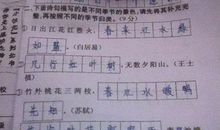 下面诗句描写的是不同季节的景色,请先将其补充完
整,再按照不同的季节归类。(9分)
①日出江花红胜火,春来江水绿
如蓝。(白居易)
红叶树,无数夕阳山。(王士
禛)
③竹外桃花三两枝,春江水暖鸭
先知。(苏轼)